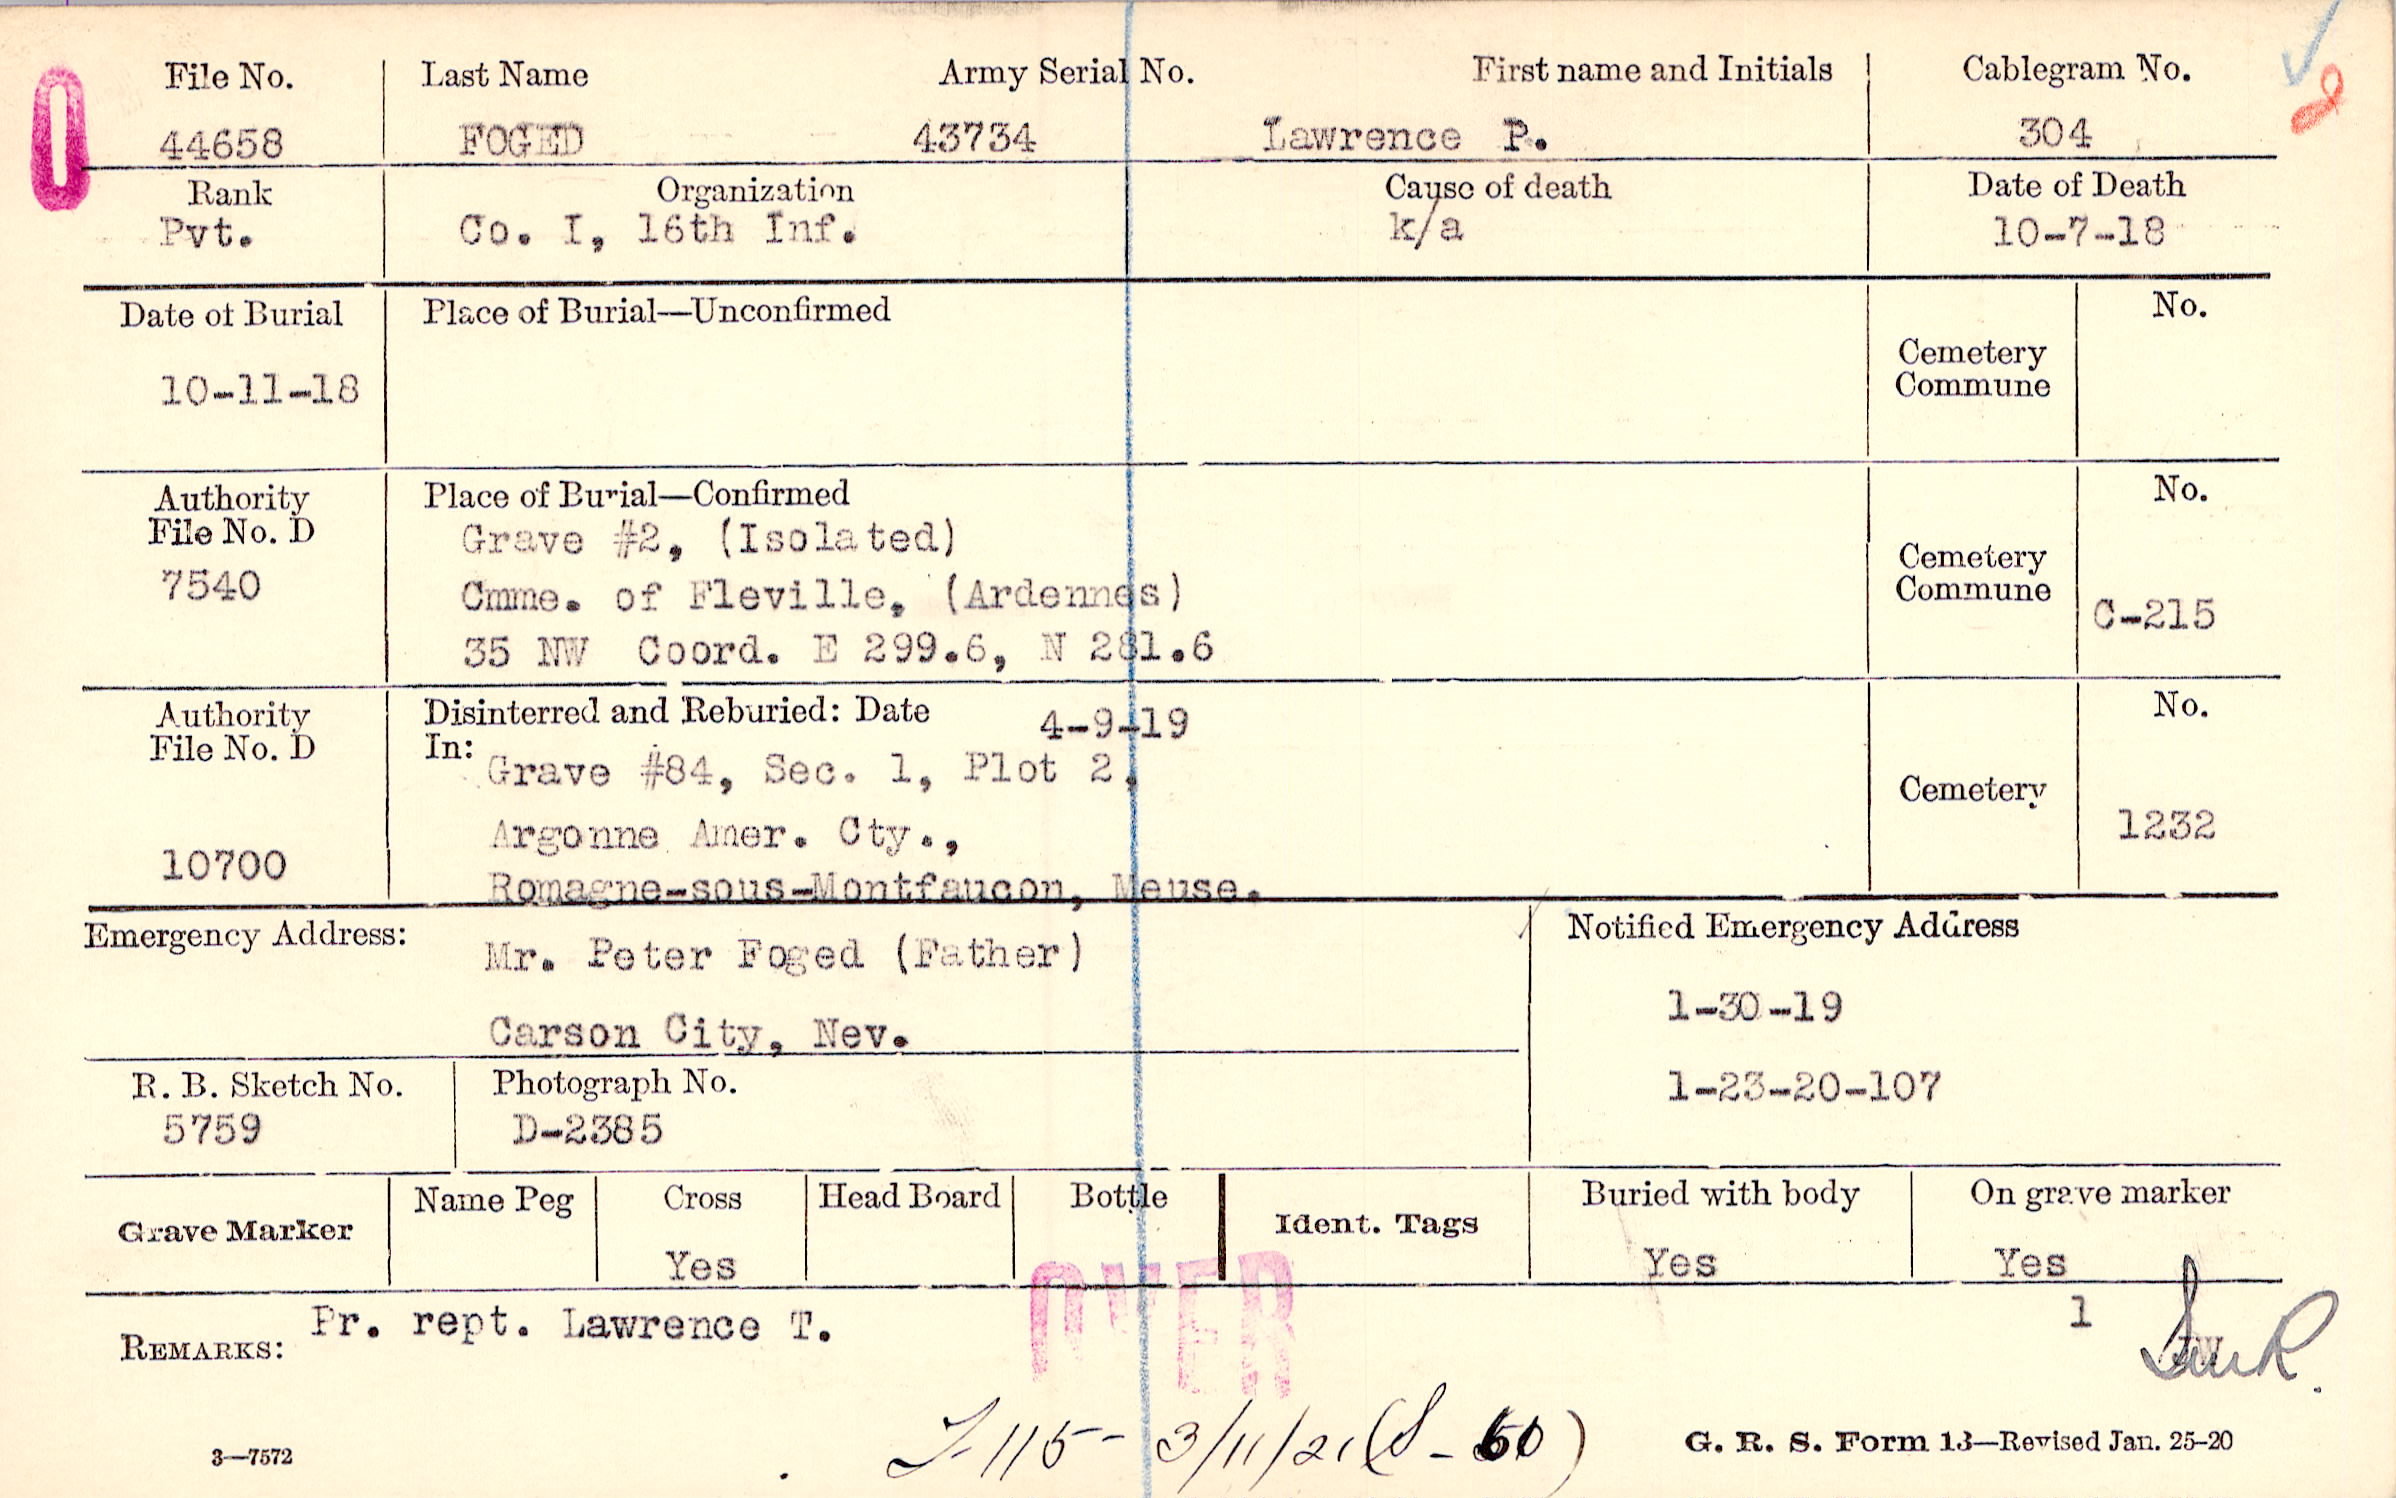 File No. Last Name Army Serial No. First name and Initials Cablegram No.
44658 FOGED 43734 Lawrence P. 304
Rank Organization Cause of death Date of Death
Pvt. Co. I, 16th Inf. k/a 10-7-18
Date of Burial Place of Burial—Unconfirmed No.
Cemetery
Commune
10-11-18
Authority Place of Burial—Confirmed No.
File No. D Grave #2, (Isolated)
7540 Cmme. of Fleville, (Ardennes) Cemetery
Commune C-215
35 NW Coord. E 299.6, N 281.6
Authority Disinterred and Reburied: Date 4-9-19 No.
File No. D In: Grave #84, Sec. 1, Plot 2,
Cemetery
Argonne Amer. Cty., 1232
10700 Romagne-sous-Montfaucon, Meuse.
Emergency Address: Mr. Peter Foged (Father) Notified Emergency Address
1-30-19
Carson City, Nev.
R. B. Sketch No. Photograph No. 1-23-20-107
5759 D-2385
Grave Marker Name Peg Cross Head Board Bottle Ident. Tags Buried with body On grave marker
Yes Yes Yes
OVER
REMARKS: Pr. rept. Lawrence T. 1
115- 3/11/21 (S-
3—7572 G. R. S. Form 13—Revised Jan. 25-20